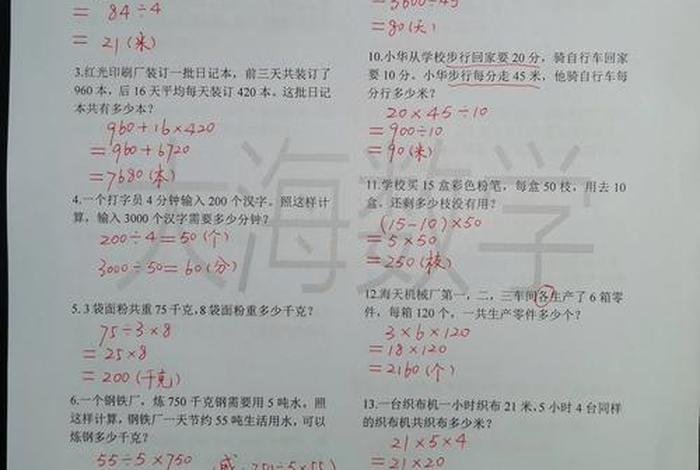 = 84÷4
= 21(米)
3.红光印刷厂装订一批日记本，前三天共装订了
960本，后16天平均每天装订420本。这批日记
本共有多少本？
960+16×420
=960+6720
=7680(本)
4.一个打字员4分钟输入200个汉字。照这样计
算，输入3000个汉字需要多少分钟？
200÷4=50(个)
3000÷50=60(分)
5.3袋面粉共重75千克，8袋面粉重多少千克？
75÷3×8
=25×8
=200(千克)
6.一个钢铁厂，炼750千克钢需要用5吨水。照
这样计算，钢铁厂一天节约55吨生活用水，可以
炼钢多少千克？
55÷5×750 或:750÷5×55)
=3600÷45
=80(天)
10.小华从学校步行回家要20分，骑自行车回家
要10分。小华步行每分走45米，他骑自行车每
分行多少米？
20×45÷10
=900÷10
=90(米)
11.学校买15盒彩色粉笔，每盒50枝，用去10
盒。还剩多少枝没有用？
(15-10)×50
=5×50
=250(枝)
12.海天机械厂第一，二，三车间各生产了6箱零
件，每箱120个，一共生产零件多少个？
3×6×120
=18×120
=2160(个)
13.一台织布机一小时织布21米，5小时4台同样
的织布机共织布多少米？
21×5×4
=21×20
大海数学